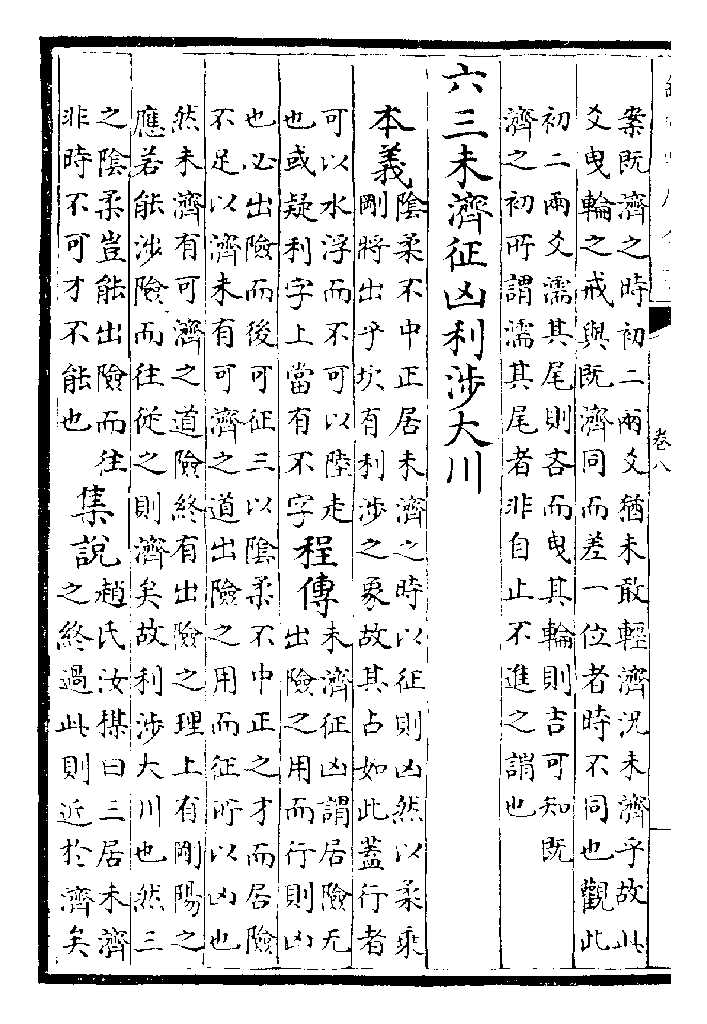 卷八
案既濟之時初二兩爻猶未敢輕濟況未濟乎故此
爻曳輪之戒與既濟同而差一位者時不同也觀此
初二兩爻濡其尾則吝而曳其輪則吉可知既
濟之初所謂濡其尾者非自止不進之謂也
六三未濟征凶利涉大川
本義
陰柔不中正居未濟之時以征則凶然以柔乘
剛將出乎坎有利涉之象故其占如此蓋行者
可以水浮而不可以陸走
也或疑利字上當有不字
程傳
未濟征凶謂居險无
出險之用而行則凶
也必出險而後可征三以陰柔不中正之才而居險
不足以濟未有可濟之道出險之用而征所以凶也
然未濟有可濟之道險終有出險之理上有剛陽之
應若能涉險而往從之則濟矣故利涉大川也然三
之陰柔豈能出險而往
非時不可才不能也
集說
趙氏汝楳曰三居未濟
之終過此則近於濟矣